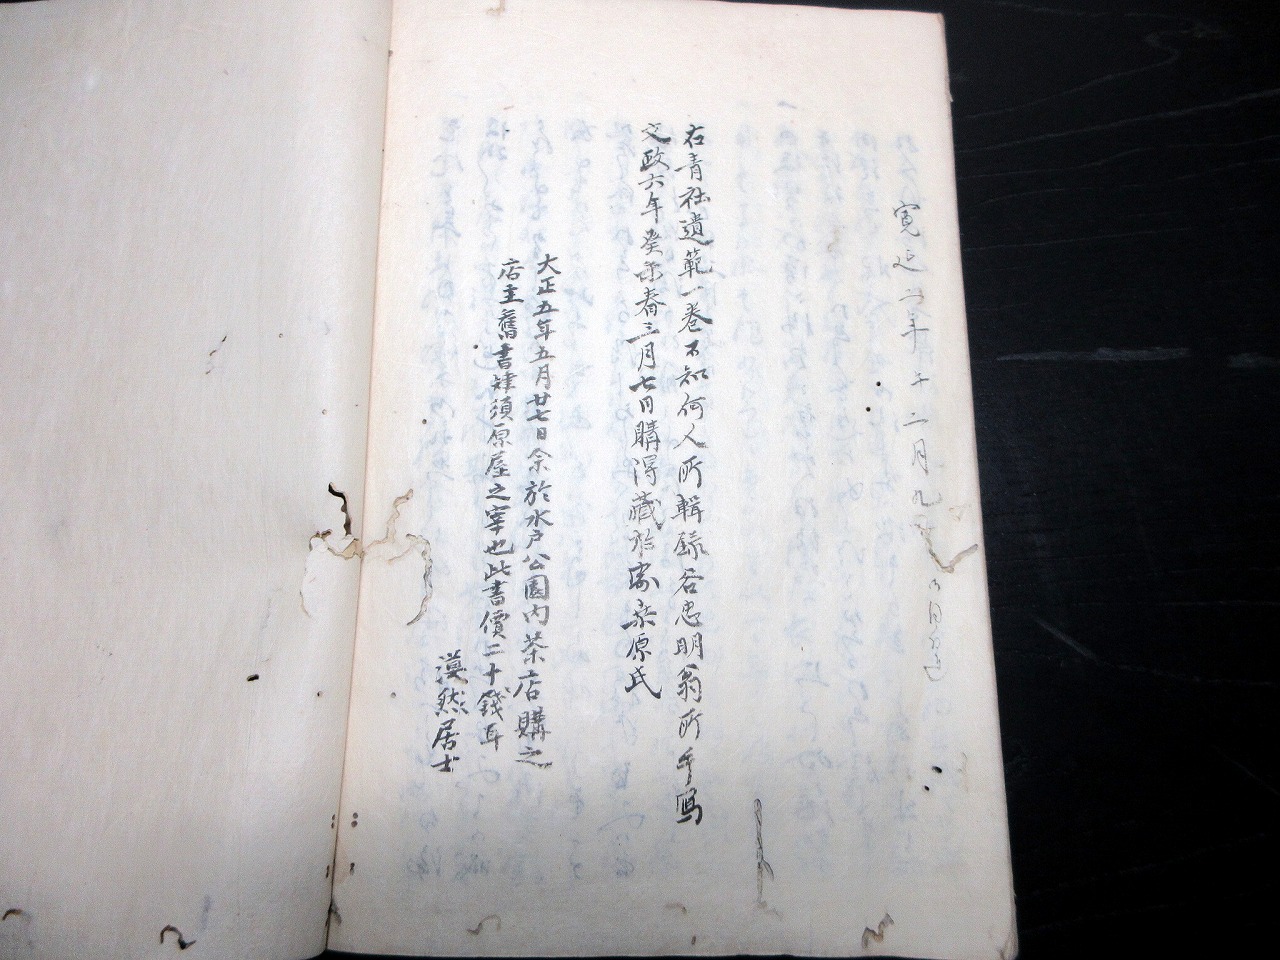 寛延二年十二月九
右青社遺範一巻不知何人所輯録谷忠明翁所手寫
文政六年癸未春三月七日購得藏於家桒原氏
大正五年五月廿七日余於水戸公園内茶店購之
店主舊書肆須原屋之宰也此書價二十錢耳
漠然居士